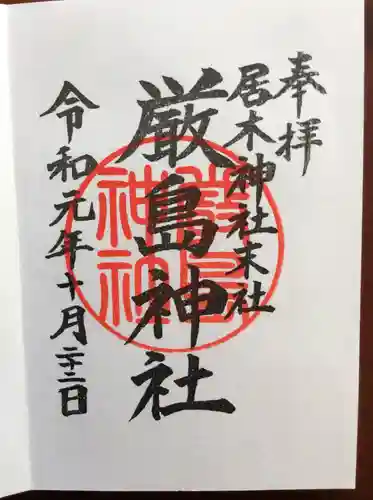 奉拝
居木神社末社
厳島神社
令和元年十月二十二日